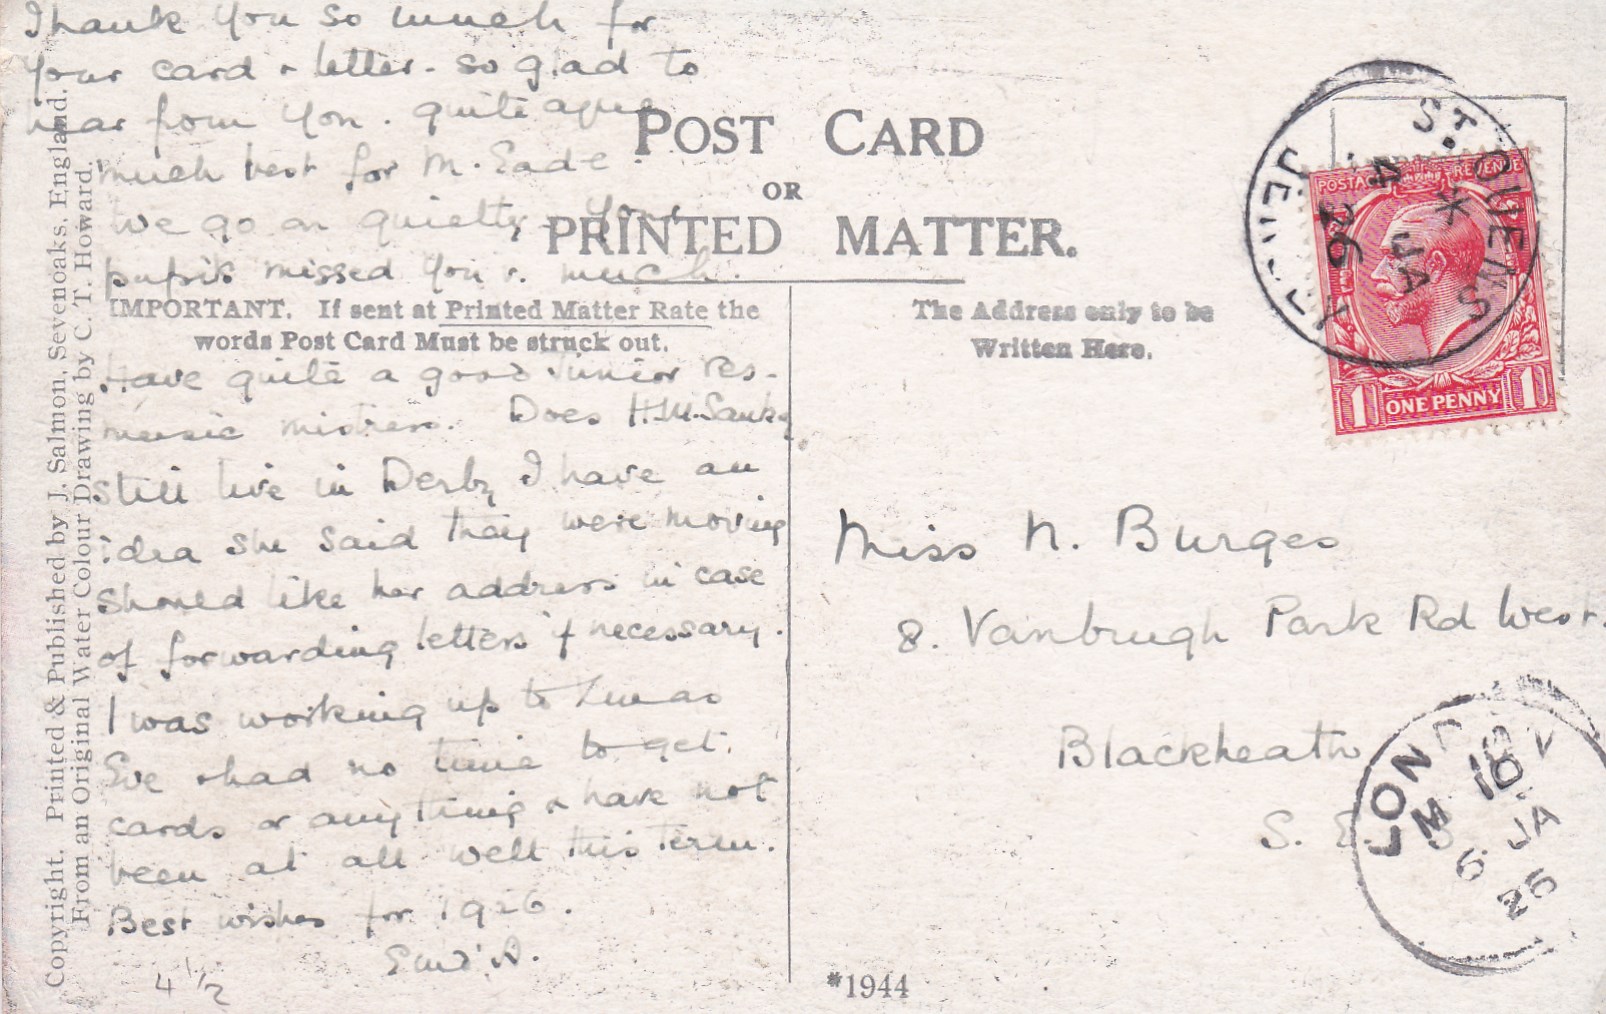 Thank you so much for
your card & letter. so glad to
hear from you. quite agree
much best for M. Eade.
We go on quietly. Your
pupils missed you v. much.
Have quite a good Junior Res.
music mistress. Does H.M. Sankey
still live in Derby I have an
idea she said they were moving
Should like her address in case
of forwarding letters if necessary.
I was working up to Xmas
Eve & had no time to get
cards or anything & have not
been at all well this term.
Best wishes for 1926.
4 1/2
POST CARD
OR
PRINTED MATTER.
IMPORTANT. If sent at Printed Matter Rate the
words Post Card Must be struck out.
The Address only to be
Written Here.
Miss N. Burges
8. Vanbrugh Park Rd West.
Blackheath
S. E. 3
*1944
Copyright. Printed & Published by J. Salmon, Sevenoaks, England.
From an Original Water Colour Drawing by C. T. Howard.
POSTAGE REVENUE
1 ONE PENNY 1
ST. OUENS
JERSEY
4 JA
26
LONDON
10
6 JA
26